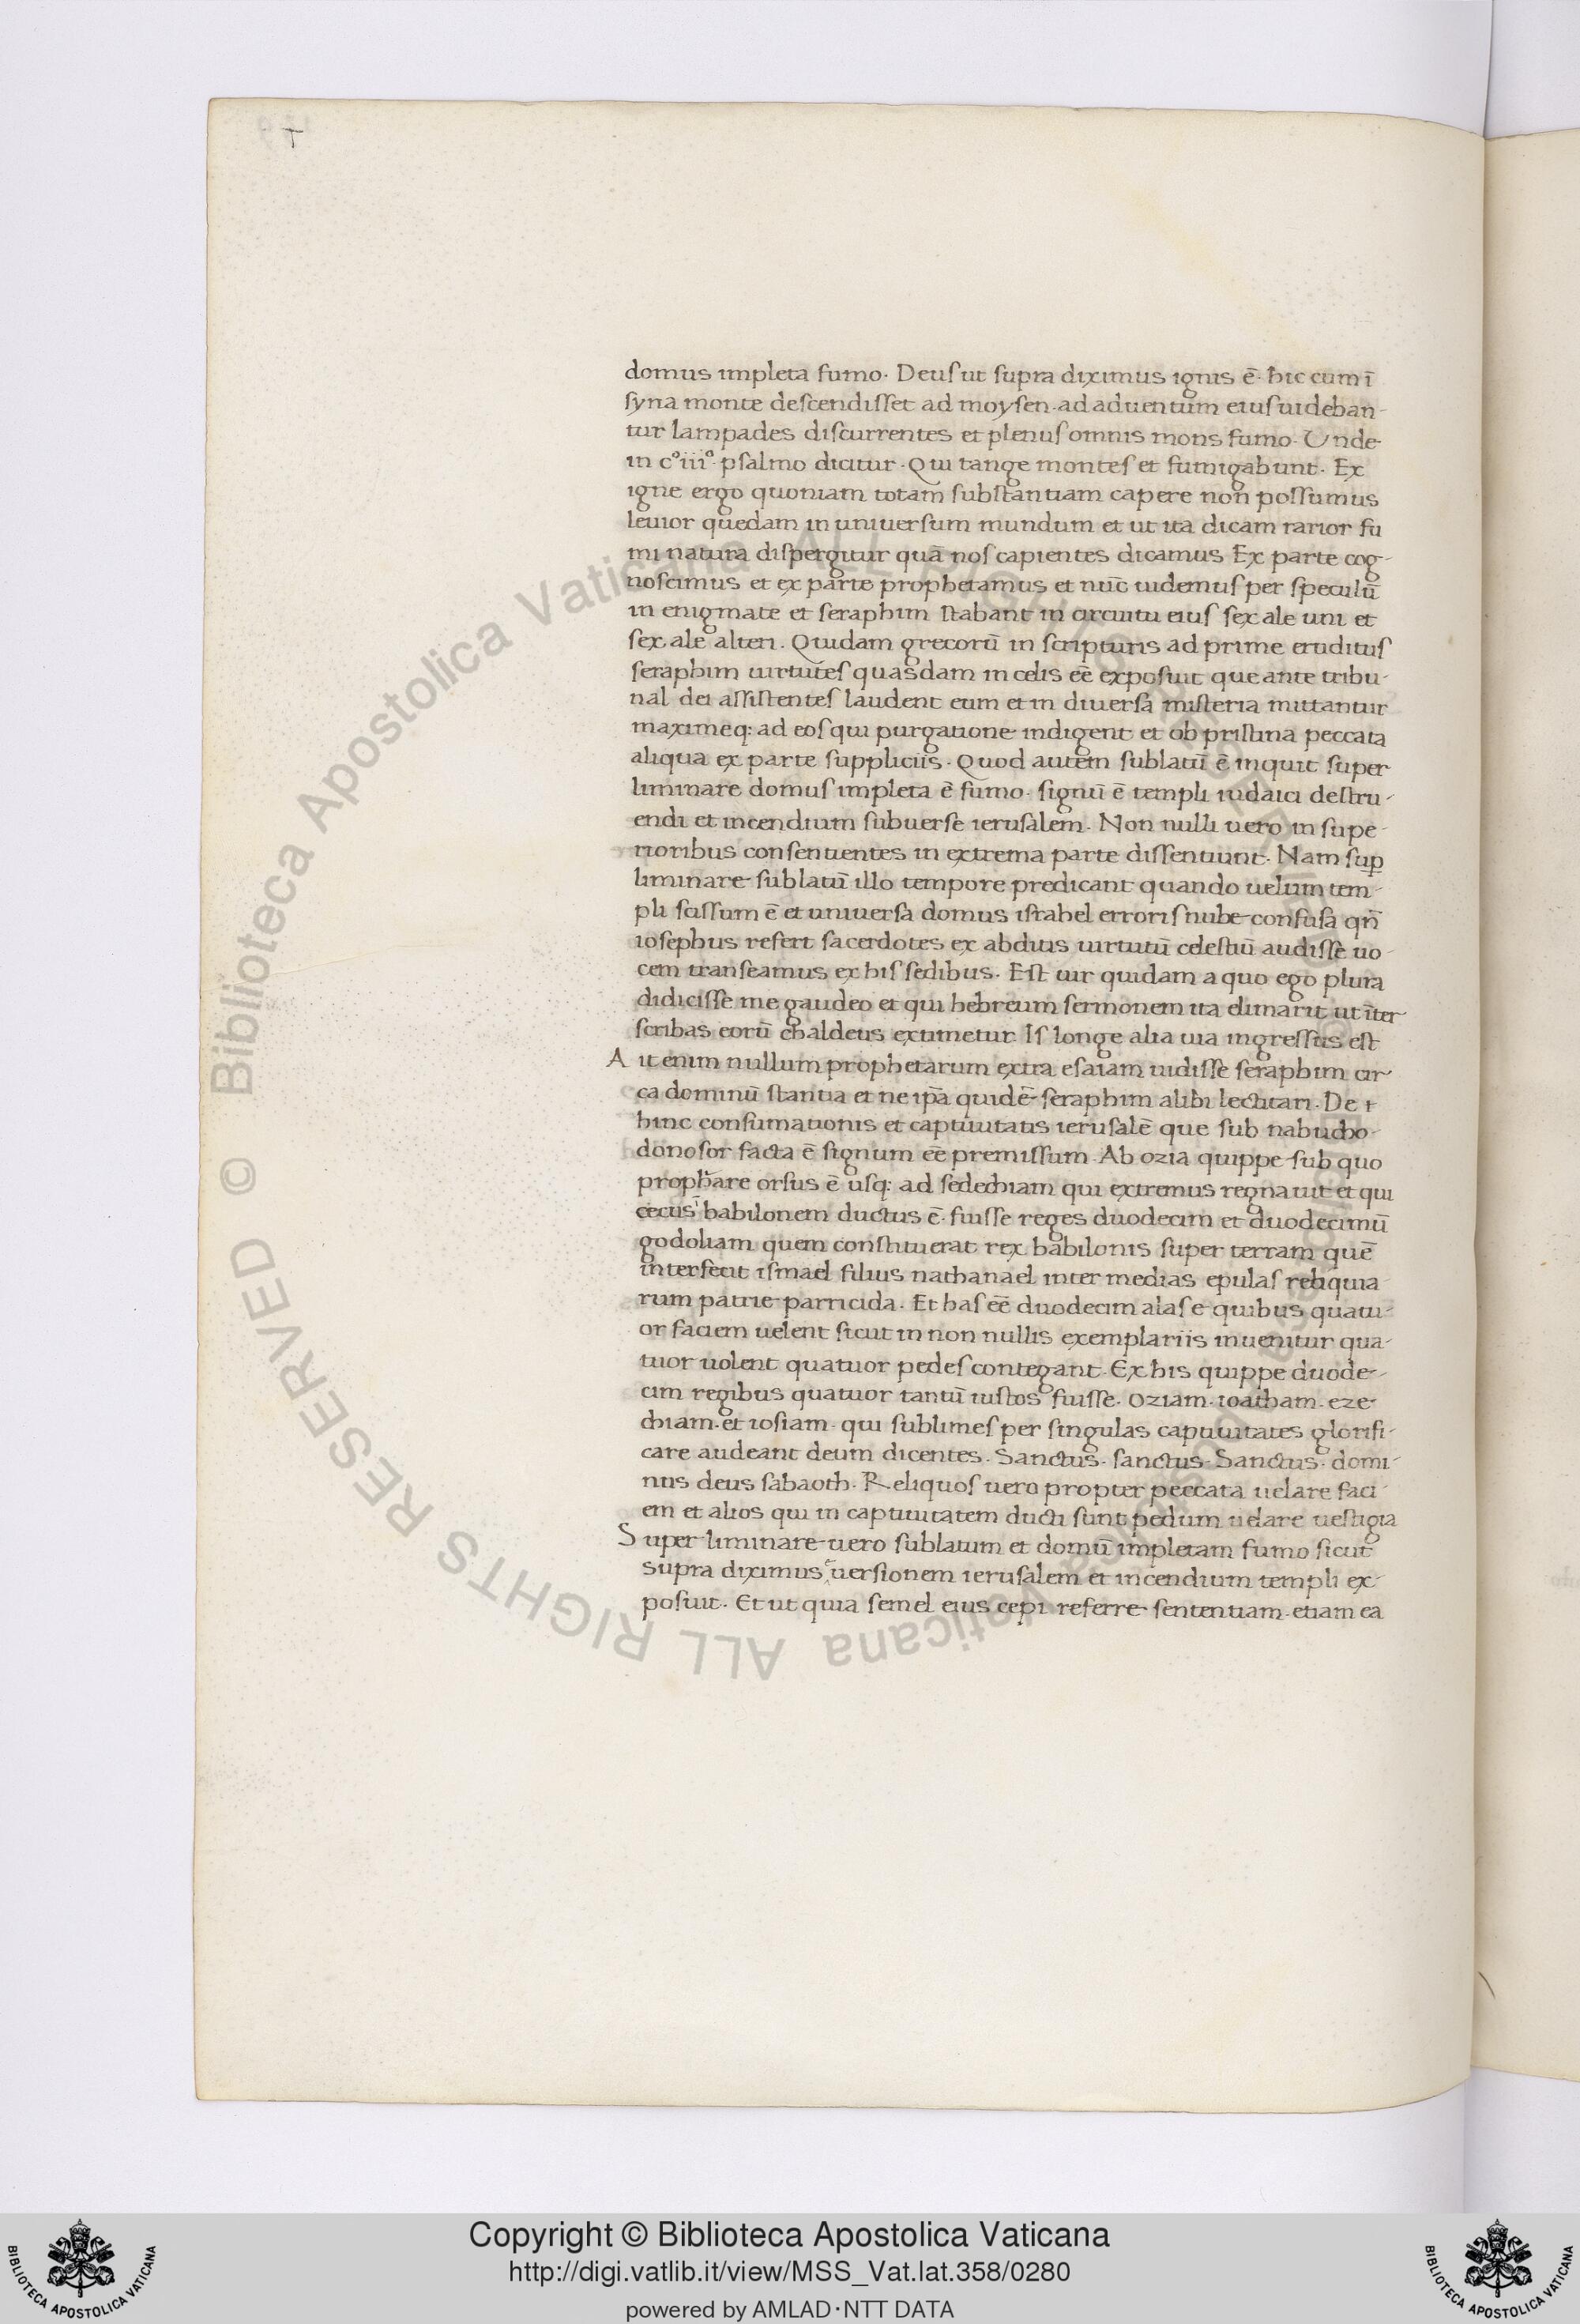 domus impleta fumo. Deus ut supra diximus ignis ē. hic cum ī
syna monte descendisset ad moysen. ad aduentum eius uideban-
tur lampades discurrentes et plenus omnis mons fumo. Unde
in cº iiiº. psalmo dicitur. Qui tange montes et fumigabunt. Ex
igne ergo quoniam totam substantiam capere non possumus
leuior quedam in uniuersum mundum et ut ita dicam rarior fu
mi natura dispergitur quā nos capientes dicamus Ex parte cog-
noscimus et ex parte prophetamus et nūc uidemus per speculū
in enigmate et seraphim stabant in circuitu eius sex ale uni et
sex ale alteri. Quidam grecorū in scripturis ad prime eruditus
seraphim uirtutes quasdam in celis eē exposuit que ante tribu-
nal dei assistentes laudent eum et in diuersa misteria mittantur
maximeq: ad eos qui purgatione indigent et ob pristina peccata
aliqua ex parte suppliciis. Quod autem sublatū ē inquit super
liminare domus impleta ē fumo. signū ē templi iudaici destru-
endi et incendium subuerse ierusalem. Non nulli uero in supe-
rioribus consentientes in extrema parte dissentiunt. Nam suꝑ
liminare sublatū illo tempore predicant quando uelum tem-
pli scissum ē et uniuersa domus israhel erroris nube confusa qn̄
iosephus refert sacerdotes ex abditis uirtutū celestiū audisse uo-
cem transeamus ex his sedibus. Est uir quidam a quo ego plura
didicisse me gaudeo et qui hebreum sermonem ita elimarit ut īter
scribas eorū chaldeus extimetur. Is longe alia uia ingressus est
A it enim nullum prophetarum extra esaiam uidisse seraphim cir-
ca dominū stantia et ne ip̄a quidē seraphim alibi lectitari. De
hinc consumationis et captiuitatis ierusalē que sub nabucho-
donosor facta ē signum eē premissum. Ab ozia quippe sub quo
proph̄are orsus ē usq: ad sedechiam qui extremus regnauit et qui
cecus ī babilonem ductus ē. fuisse reges duodecim et duodecimū
godoliam quem constituerat rex babilonis super terram quē
interfecit ismael filius nathanael inter medias epulas reliquia
rum patrie parricida. Et has eē duodecim alas e quibus quatu-
or faciem uelent sicut in non nullis exemplariis inuenitur qua-
tuor uolent quatuor pedes contegant. Ex his quippe duode-
cim regibus quatuor tantū iustos fuisse. oziam. ioatham. eze-
chiam. et iosiam. qui sublimes per singulas captiuitates glorifi-
care audeant deum dicentes. Sanctus. sanctus. Sanctus. domi-
nus deus sabaoth. Reliquos uero propter peccata uelare faci-
em et alios qui in captiuitatem ducti sunt pedum uelare uestigia
S uper liminare uero sublatum et domū impletam fumo sicut
supra diximus euersionem ierusalem et incendium templi ex-
posuit. Et ut quia semel eius cepi referre sententiam. etiam ea
Biblioteca Apostolica Vaticana ALL RIGHTS RESERVED ©
Copyright © Biblioteca Apostolica Vaticana
http://digi.vatlib.it/view/MSS_Vat.lat.358/0280
powered by AMLAD·NTT DATA
BIBLIOTECA APOSTOLICA VATICANA
BIBLIOTECA APOSTOLICA VATICANA